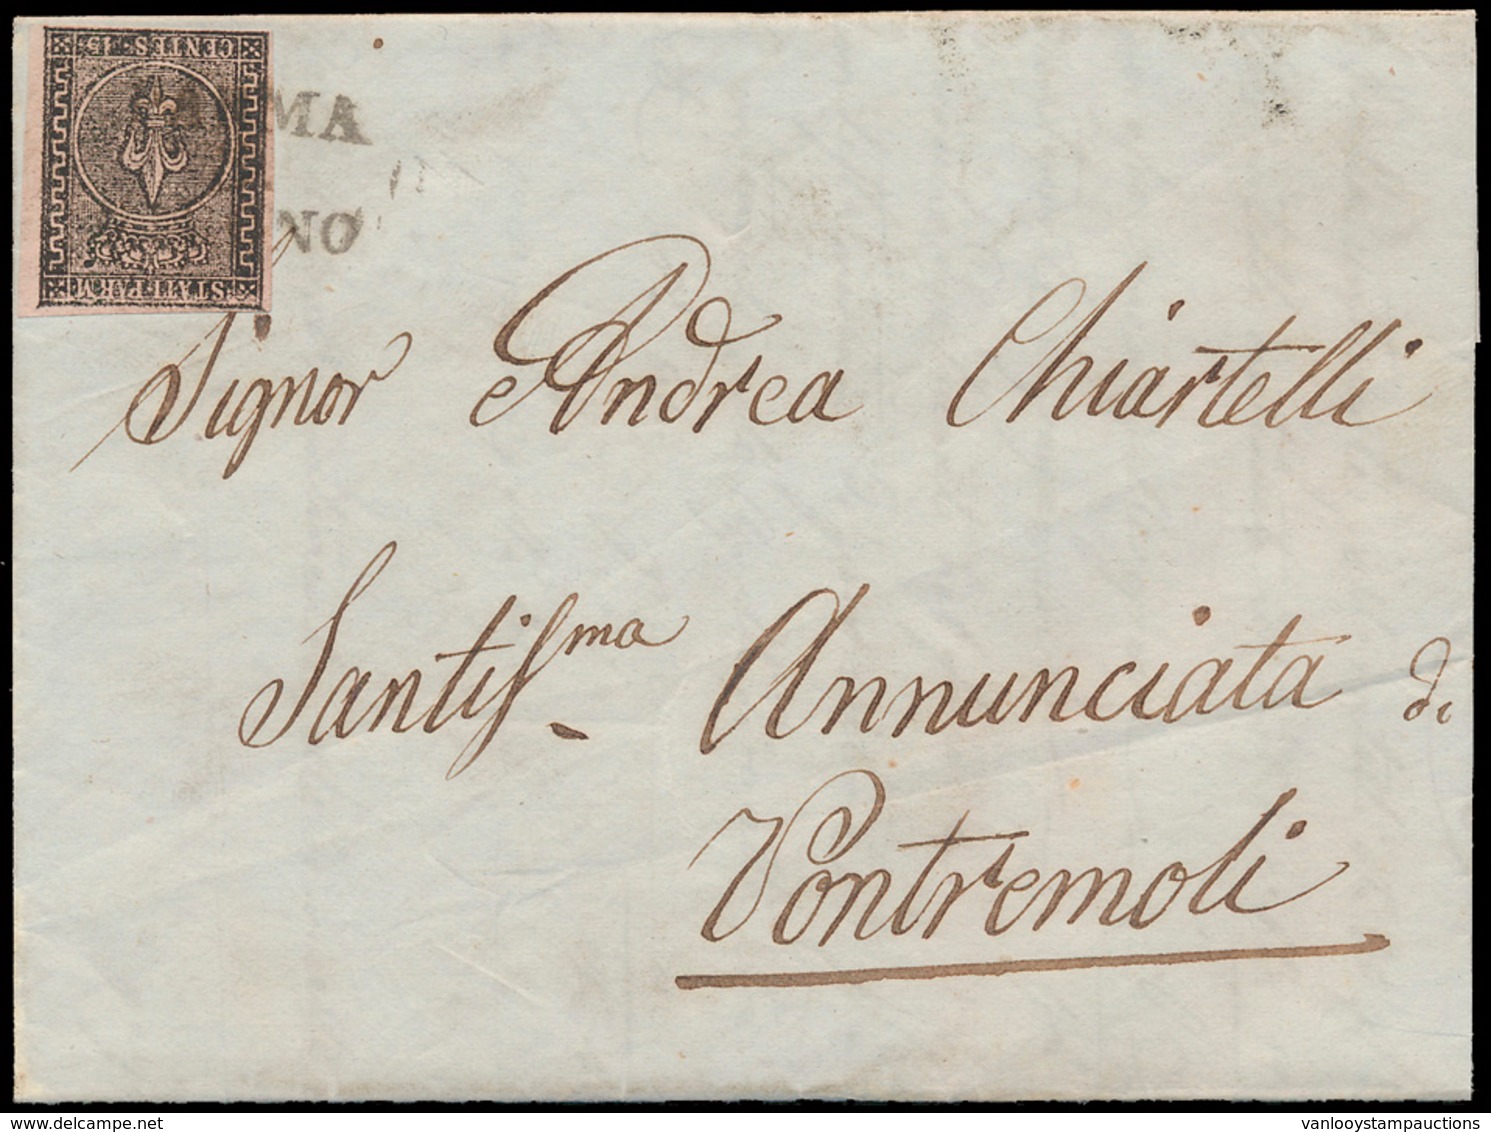 CENTES. 15
STATI PARM.
MA
NO
Signor Andrea Chiartelli
Santiss.ma Annunciata di
Pontremoli
vanlooystampauctions